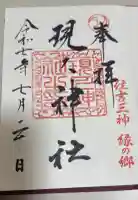 奉拝
住吉三神 縁の郷
現人神社
令和七年七月 日